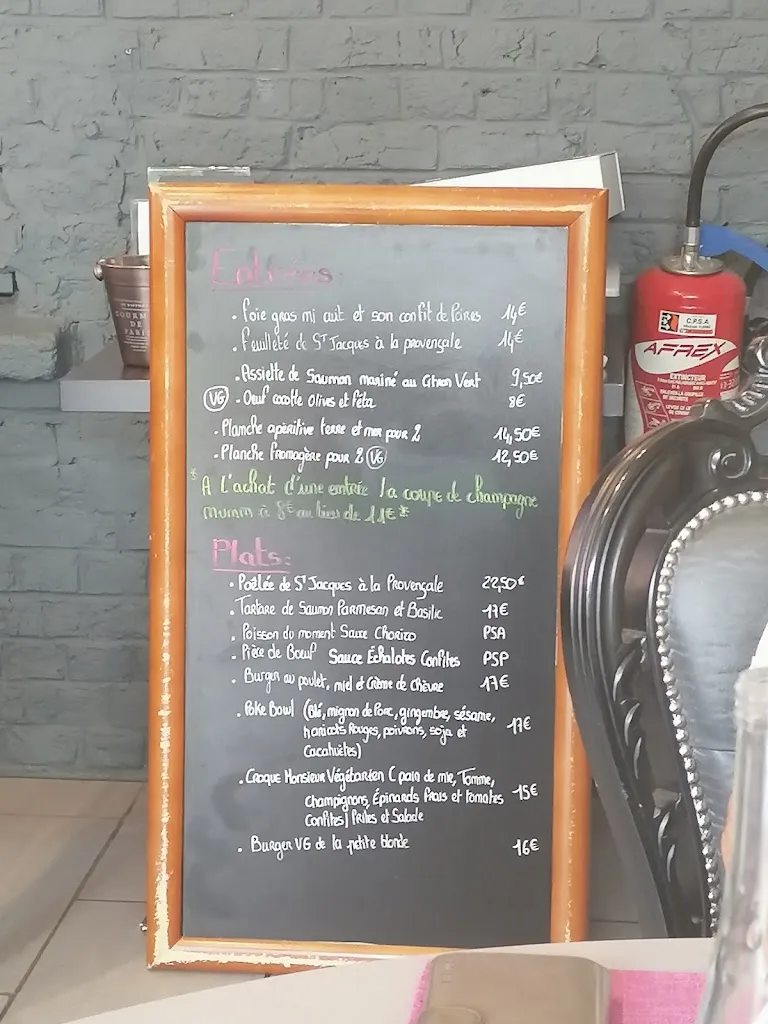 Entrées:
. Foie gras mi cuit et son confit de Poires 14€
. Feuilleté de St Jacques à la provençale 14€
. Assiette de Saumon mariné au Citron Vert 9,50€
(VG) . Oeuf cocotte Olives et Féta 8€
. Planche apéritive terre et mer pour 2 14,50€
. Planche fromagère pour 2 (VG) 12,50€
* A L'achat d'une entrée la coupe de champagne
mumm à 8€ au lieu de 11€ *
Plats:
. Poêlée de St Jacques à la Provençale 22,50€
. Tartare de Saumon Parmesan et Basilic 17€
. Poisson du moment Sauce Chorizo PSA
. Pièce de Boeuf Sauce Échalotes Confites PSP
. Burger au poulet, miel et Crème de Chèvre 17€
. Poke Bowl (Blé, mignon de Porc, gingembre, sésame,
haricots Rouges, poivrons, soja et 17€
Cacahuètes)
. Croque Monsieur Végétarien ( pain de mie, Tomme,
Champignons, Épinards frais et tomates 15€
Confites) Frites et Salade
. Burger VG de la petite blonde 16€
GOURM
DE
PARI
C.P.S.A.
AFREX
EXTINCTEUR